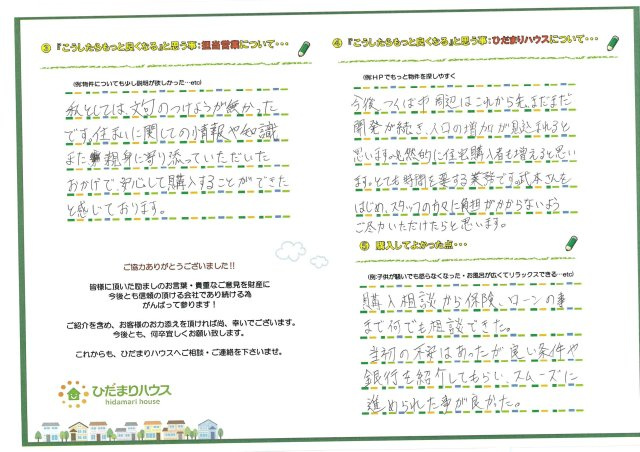 ③ 『こうしたらもっと良くなる』と思う事：担当営業について・・・
(例:物件についても少し説明が欲しかった…etc)
私としては、文句のつけようが無かった
です。住まいに関しての情報や知識
また親身に寄り添っていただいた
おかげで、安心して購入することができた
と感じております。
ご協力ありがとうございました!!
皆様に頂いた励ましのお言葉・貴重なご意見を財産に
今後とも信頼の頂ける会社であり続ける為
がんばって参ります！
ご紹介を含め、お客様のお力添えを頂ければ尚、幸いでございます。
今後とも、何卒宜しくお願い致します。
これからも、ひだまりハウスへご相談・ご連絡を下さいませ。
ひだまりハウス
hidamari house
④ 『こうしたらもっと良くなる』と思う事：ひだまりハウスについて・・・
(例:ＨＰでもっと物件を探しやすく
今後、つくば市周辺はこれから先、まだまだ
開発が続き、人口の増加が見込まれると
思います。必然的に住宅購入者も増えると思い
ます。とても時間を要する業務です。武本さんを
はじめ、スタッフの方々に負担がかからないよう
ご尽力いただけたらと思います。
⑤ 購入してよかった点・・・
(例:子供が騒いでも怒らなくなった・お風呂が広くてリラックスできる…etc)
購入相談から保険、ローンの事
まで何でも相談できた。
当初の不安はあったが良い条件や
銀行を紹介してもらい、スムーズに
進められた事が良かった。